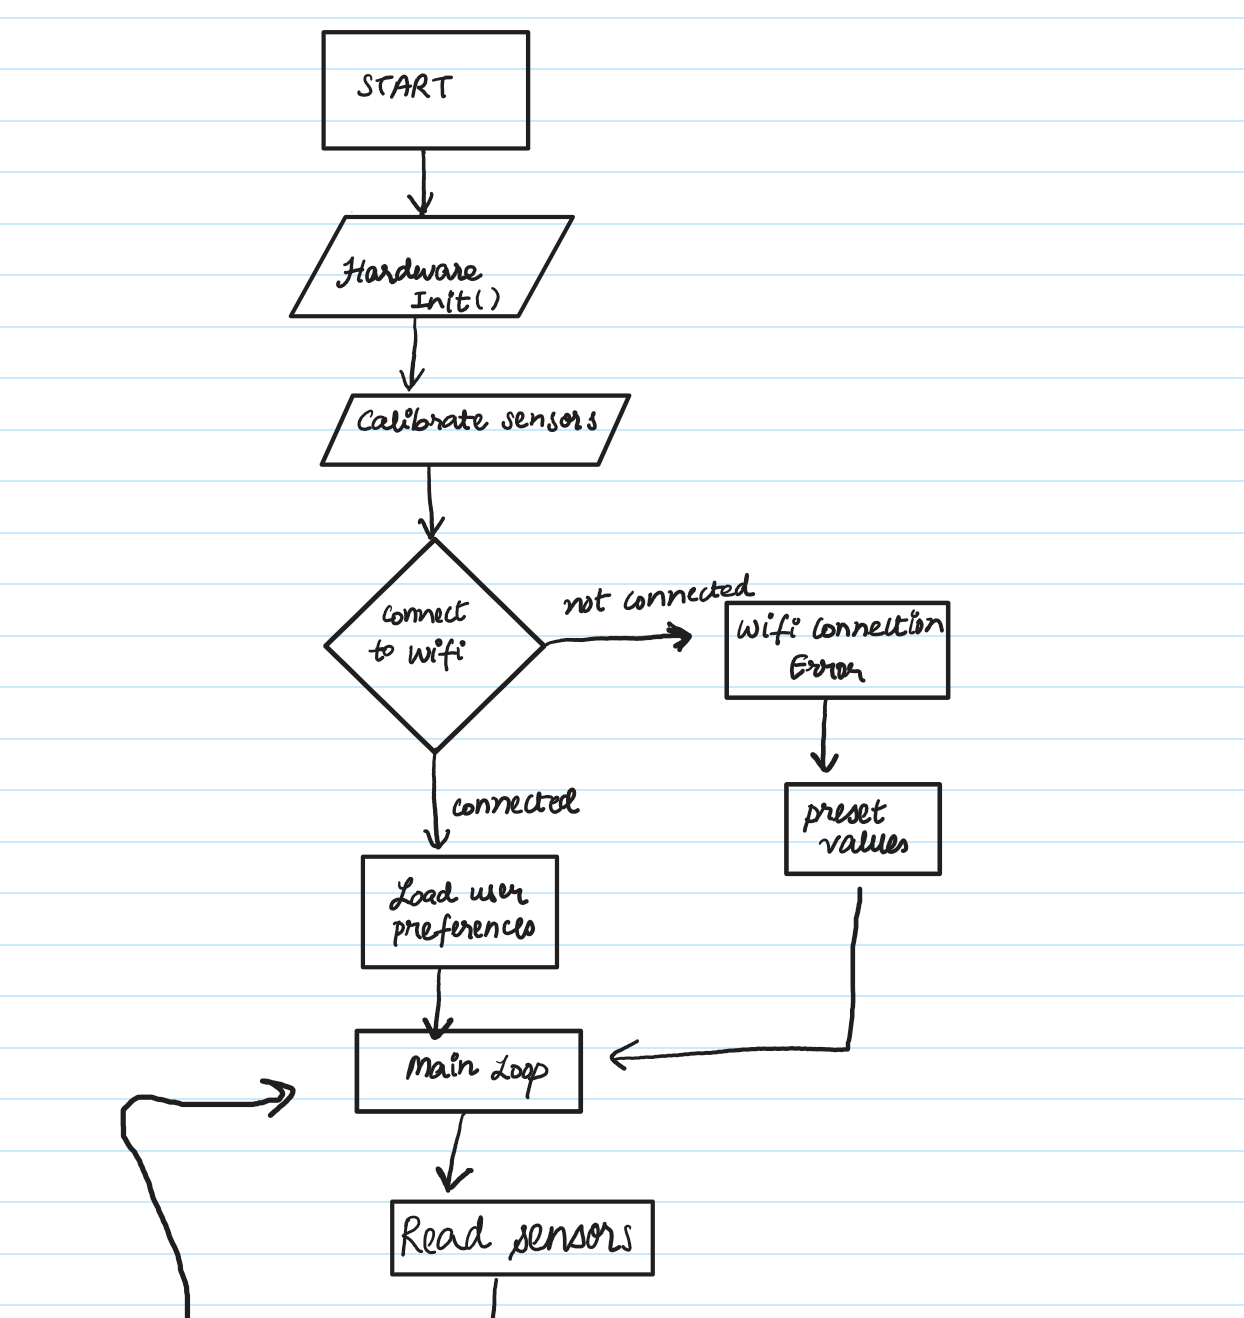 START
Hardware
Init()
Calibrate sensors
connect
to wifi
not connected
Wifi connection
Error
connected
preset
values
Load user
preferences
Main Loop
Read sensors